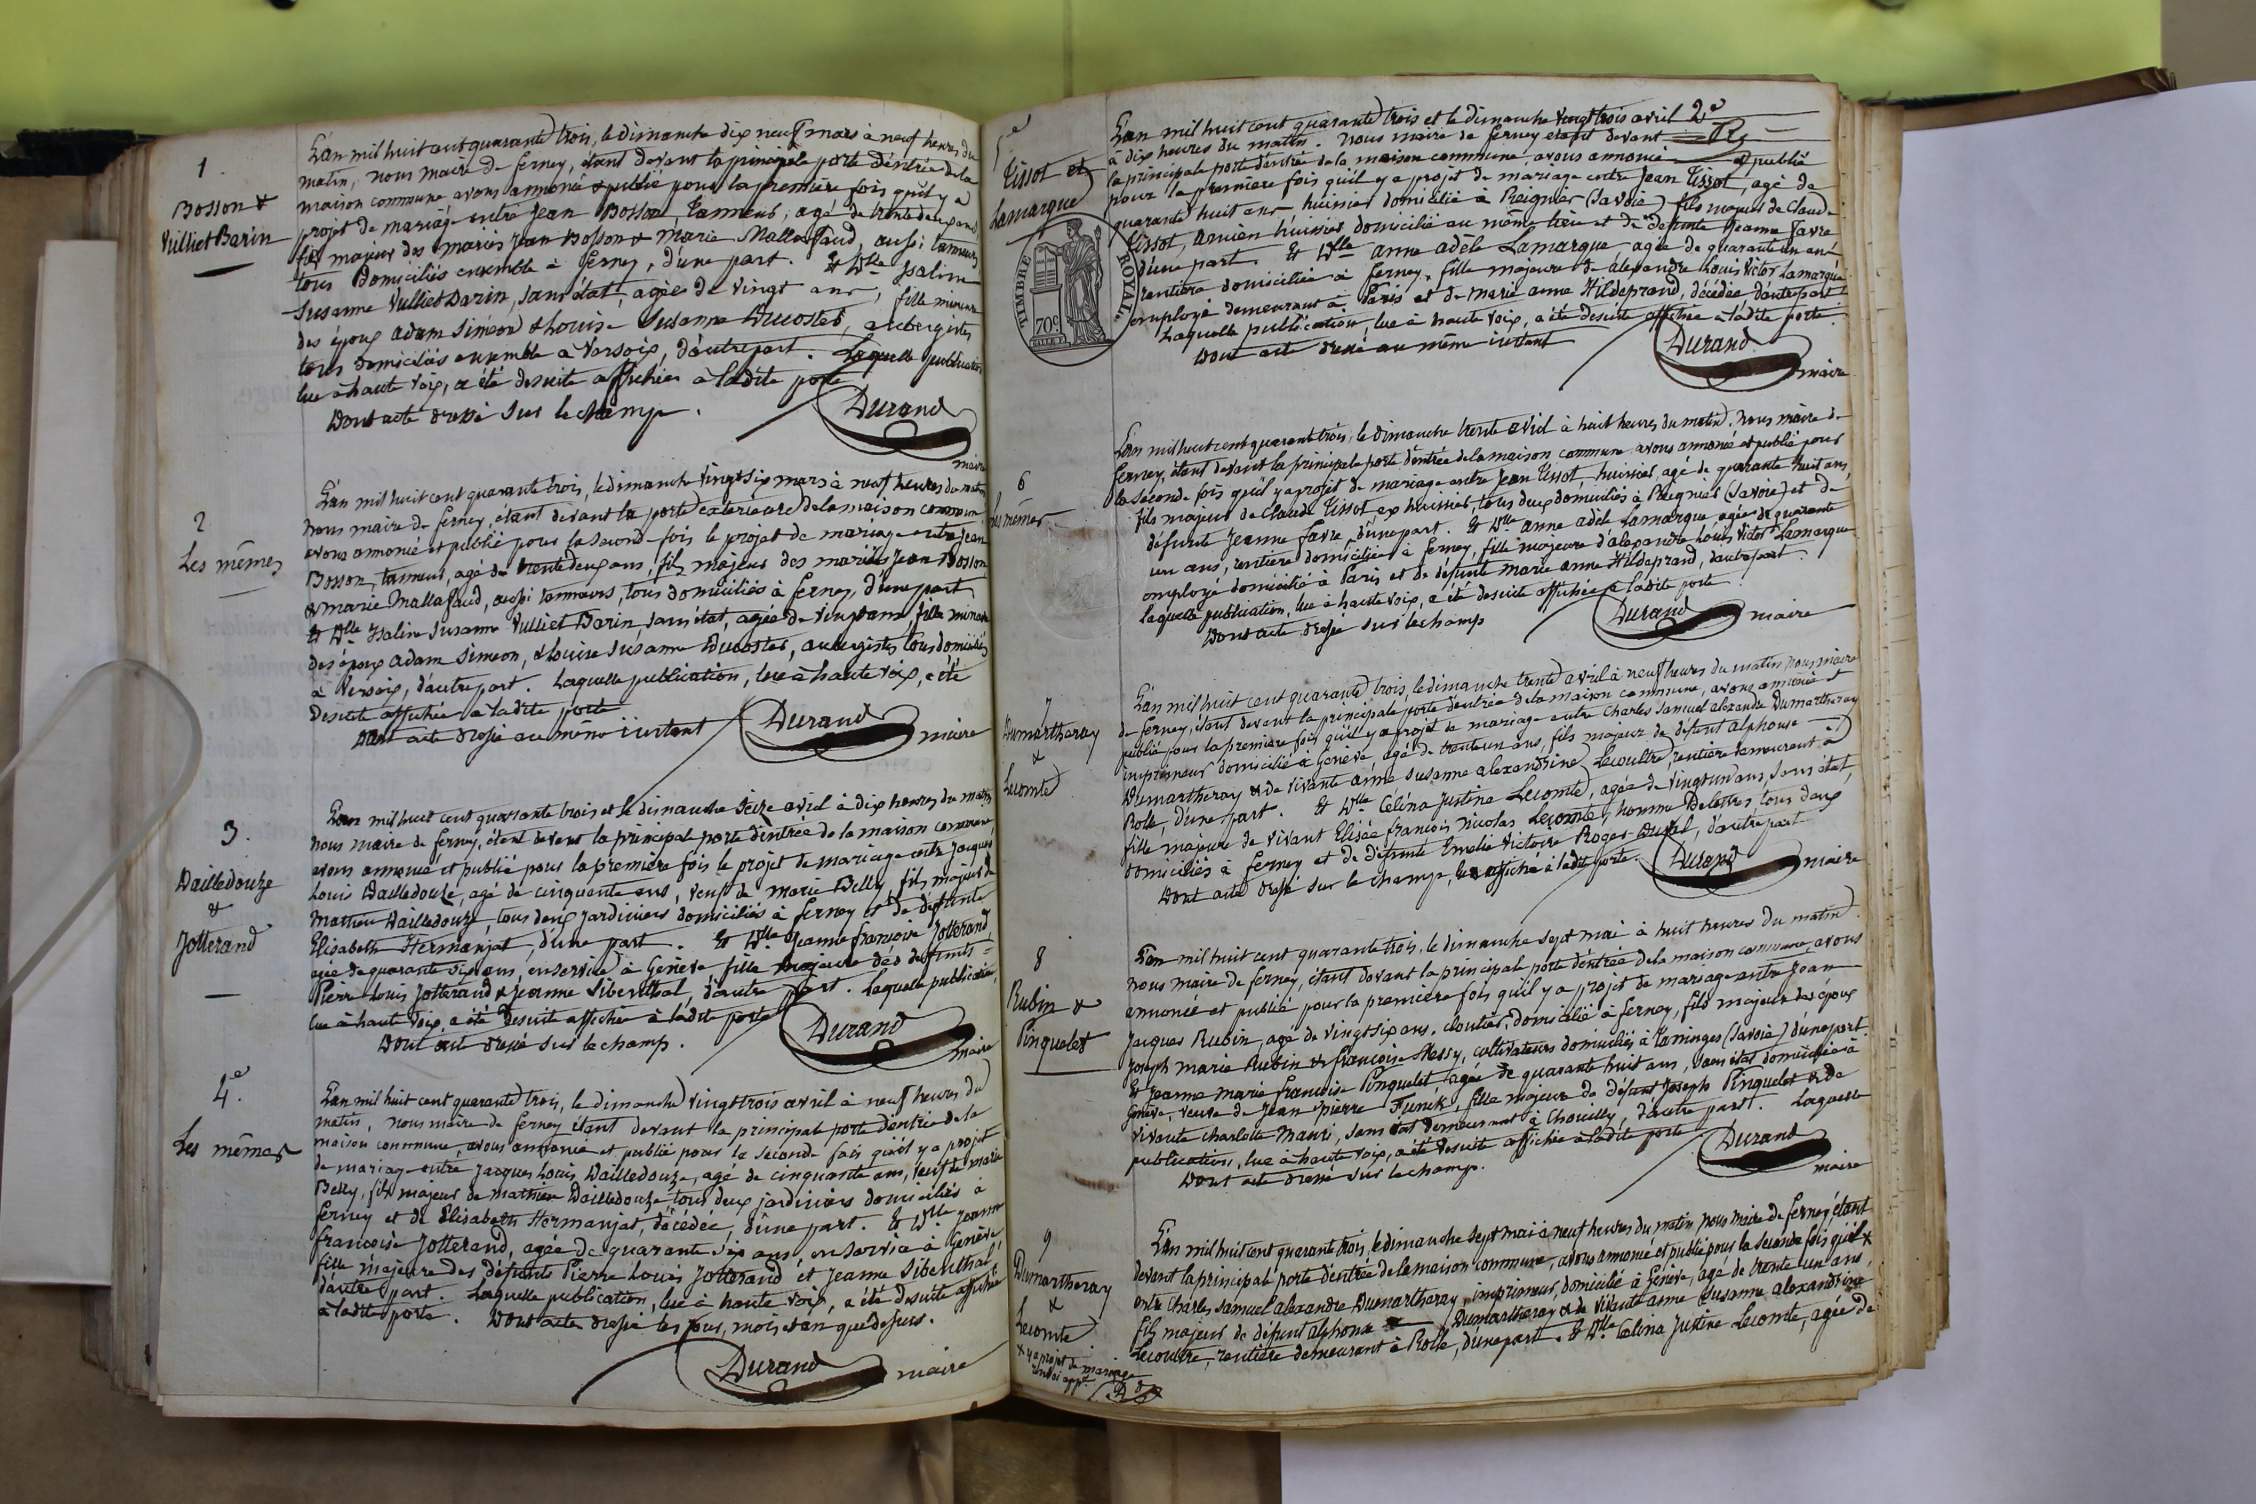 1
Bosson &
Vulliet Barin
L'an mil huit cent quarante trois, le dimanche dix neuf mars à neuf heures du
matin, nous maire de ferney, étant devant la principale porte d'entrée de la
maison commune avons annoncé & publié pour la première fois qu'il y a
projet de mariage entre Jean Bosson, tanneur, agé de trente deux ans
fils majeur des mariés Jean Bosson & Marie Mallaffaud, aussi tanneurs
tous domiciliés ensemble à ferney, d'une part. Et Dlle Isaline
Susanne Vulliet Barin, sans état, agée de vingt ans, fille mineure
des époux adam Siméon & Louise Susanne Ducoster, aubergistes
tous domiciliés ensemble à Versoix, d'autre part. Laquelle publication
lue à haute voix, a été desuite affichée à ladite porte
Dont acte dressé sur le champ.
Durand
maire
2
Les mêmes
L'an mil huit cent quarante trois, le dimanche vingt six mars à neuf heures du matin
nous maire de ferney, étant devant la porte exterieure de la maison commune
avons annoncé et publié pour la seconde fois le projet de mariage entre Jean
Bosson, tanneur, agé de trente deux ans, fils majeur des mariés Jean Bosson
& Marie Mallaffaud, aussi tanneurs, tous domiciliés à ferney, d'une part
Et Dlle Isaline Susanne Vulliet Barin, sans état, agée de vingt ans, fille mineure
des époux adam Simeon, & Louise Susanne Ducoster, aubergistes tous domiciliés
à Versoix, d'autre part. Laquelle publication, lue à haute voix, a été
desuite affichée à ladite porte
Dont acte dressé au même instant
Durand
maire
3.
Dailledouze
&
Jotterand
L'an mil huit cent quarante trois et le dimanche seize avril à dix heures du matin
nous maire de ferney, étant devant la principale porte d'entrée de la maison commune
avons annoncé et publié pour la première fois le projet de mariage entre Jacques
Louis Dailledouze, agé de cinquante ans, veuf de Marie Belly, fils majeur de
Mathieu Dailledouze, tous deux jardiniers domiciliés à ferney et de défunte
Elisabeth Hermanjat, d'une part. Et Dlle Jeanne françoise Jotterand,
agée de quarante six ans, en service à Genève, fille majeure des défunts
Pierre Louis Jotterand & Jeanne Sibenthal, d'autre part. Laquelle publication,
lue à haute voix, a été desuite affichée à ladite porte
Dont acte dressé sur le champ.
Durand
maire
4.e
Les mêmes
L'an mil huit cent quarante trois, le dimanche vingt trois avril à neuf heures du
matin, nous maire de ferney étant devant la principale porte d'entrée de la
maison commune, avons annoncé et publié pour la seconde fois qu'il y a projet
de mariage entre Jacques Louis Dailledouze, agé de cinquante ans, veuf de Marie
Belly, fils majeur de Mathieu Dailledouze, tous deux jardiniers domiciliés à
ferney et de Elisabeth Hermanjat, décédée, d'une part. Et Dlle Jeanne
françoise Jotterand, agée de quarante six ans, en service à Genève
fille majeure des défunts Pierre Louis Jotterand et Jeanne Sibenthal,
d'autre part. Laquelle publication, lue à haute voix, a été desuite affichée
à ladite porte. Dont acte dressé les jour, mois et an que dessus.
Durand
maire
2e
5e
Tissot et
Lamarque
TIMBRE ROYAL
70c
L'an mil huit cent quarante trois et le dimanche vingt trois avril
à dix heures du matin. Nous maire de ferney étant devant
la principale porte d'entrée de la maison commune, avons annoncé et publié
pour la première fois qu'il y a projet de mariage entre Jean Tissot, agé de
quarante huit ans huissier domicilié à Reignier (Savoie) fils majeur de Claude
Tissot, ancien huissier domicilié au même lieu et de défunte Jeanne favre
d'une part. Et Dlle anne adèle Lamarque agée de quarante un ans
rentière domiciliée à ferney, fille majeure de alexandre Louis Victor Lamarque
employé demeurant à Paris et de marie anne Hildeprand, décédée, d'autre part
Laquelle publication, lue à haute voix, a été desuite affichée à ladite porte
Dont acte dressé au même instant
Durand
maire
6
Les mêmes
L'an mil huit cent quarante trois, le dimanche trente avril à huit heures du matin. Nous maire de
ferney, étant devant la principale porte d'entrée de la maison commune avons annoncé et publié pour
la seconde fois qu'il y a projet de mariage entre Jean Tissot, huissier agé de quarante huit ans,
fils majeur de Claude Tissot ex huissier, tous deux domiciliés à Reignier (Savoie) et de
défunte Jeanne favre, d'une part. Et Dlle anne adèle Lamarque, agée de quarante
un ans, rentière domiciliée à ferney, fille majeure d'alexandre Louis Victor Lamarque
employé domicilié à Paris et de défunte marie anne Hildeprand, d'autre part.
Laquelle publication, lue à haute voix, a été desuite affichée à ladite porte
Dont acte dressé sur le champ
Durand
maire
7
Dumartheray
&
Lecomte
L'an mil huit cent quarante trois, le dimanche trente avril à neuf heures du matin nous maire
de ferney, étant devant la principale porte d'entrée de la maison commune, avons annoncé et
publié pour la première fois qu'il y a projet de mariage entre Charles Samuel alexandre Dumartheray
imprimeur domicilié à Genève, agé de trente un ans, fils majeur de défunt alphonse
Dumartheray & de vivante anne susanne alexandrine Lecoultre, rentière demeurant à
Rolle, d'une part. Et Dlle Célina Justine Lecomte, agée de vingt un ans, sans état,
fille majeure de vivant Elisée françois Nicolas Lecomte, homme de lettres, tous deux
domiciliés à ferney et de défunte Emélie Victoire Roger Duval, d'autre part
Dont acte dressé sur le champ, & affiché à ladite porte.
Durand
maire
8
Rubin &
Pinquelet
L'an mil huit cent quarante trois, le dimanche sept mai à huit heures du matin
nous maire de ferney, étant devant la principale porte d'entrée de la maison commune, avons
annoncé et publié pour la première fois qu'il y a projet de mariage entre Jean
Jacques Rubin, agé de vingt six ans, cloutier, domicilié à ferney, fils majeur des époux
Joseph marie Rubin & françoise Messy, cultivateurs domiciliés à Taninges (Savoie) d'une part.
Et Jeanne marie françoise Pinquelet, agée de quarante huit ans, sans état domiciliée à
Genève, veuve de Jean Pierre Funck, fille majeure de défunt Joseph Pinquelet & de
vivante Charlotte Mauri, sans état demeurant à Chouilly, d'autre part. Laquelle
publication, lue à haute voix, a été desuite affichée à ladite porte
Dont acte dressé sur le champ.
Durand
maire
9
Dumartheray
&
Lecomte
x y a projet de mariage
renvoi app.
L'an mil huit cent quarante trois, le dimanche sept mai à neuf heures du matin nous maire de ferney étant
devant la principale porte d'entrée de la maison commune, avons annoncé et publié pour la seconde fois qu'il x
entre Charles Samuel alexandre Dumartheray, imprimeur, domicilié à Genève, agé de trente un ans,
fils majeur de défunt alphonse Dumartheray & de vivante anne susanne alexandrine
Lecoultre, rentière demeurant à Rolle, d'une part. Et Dlle Celina Justine Lecomte, agée de